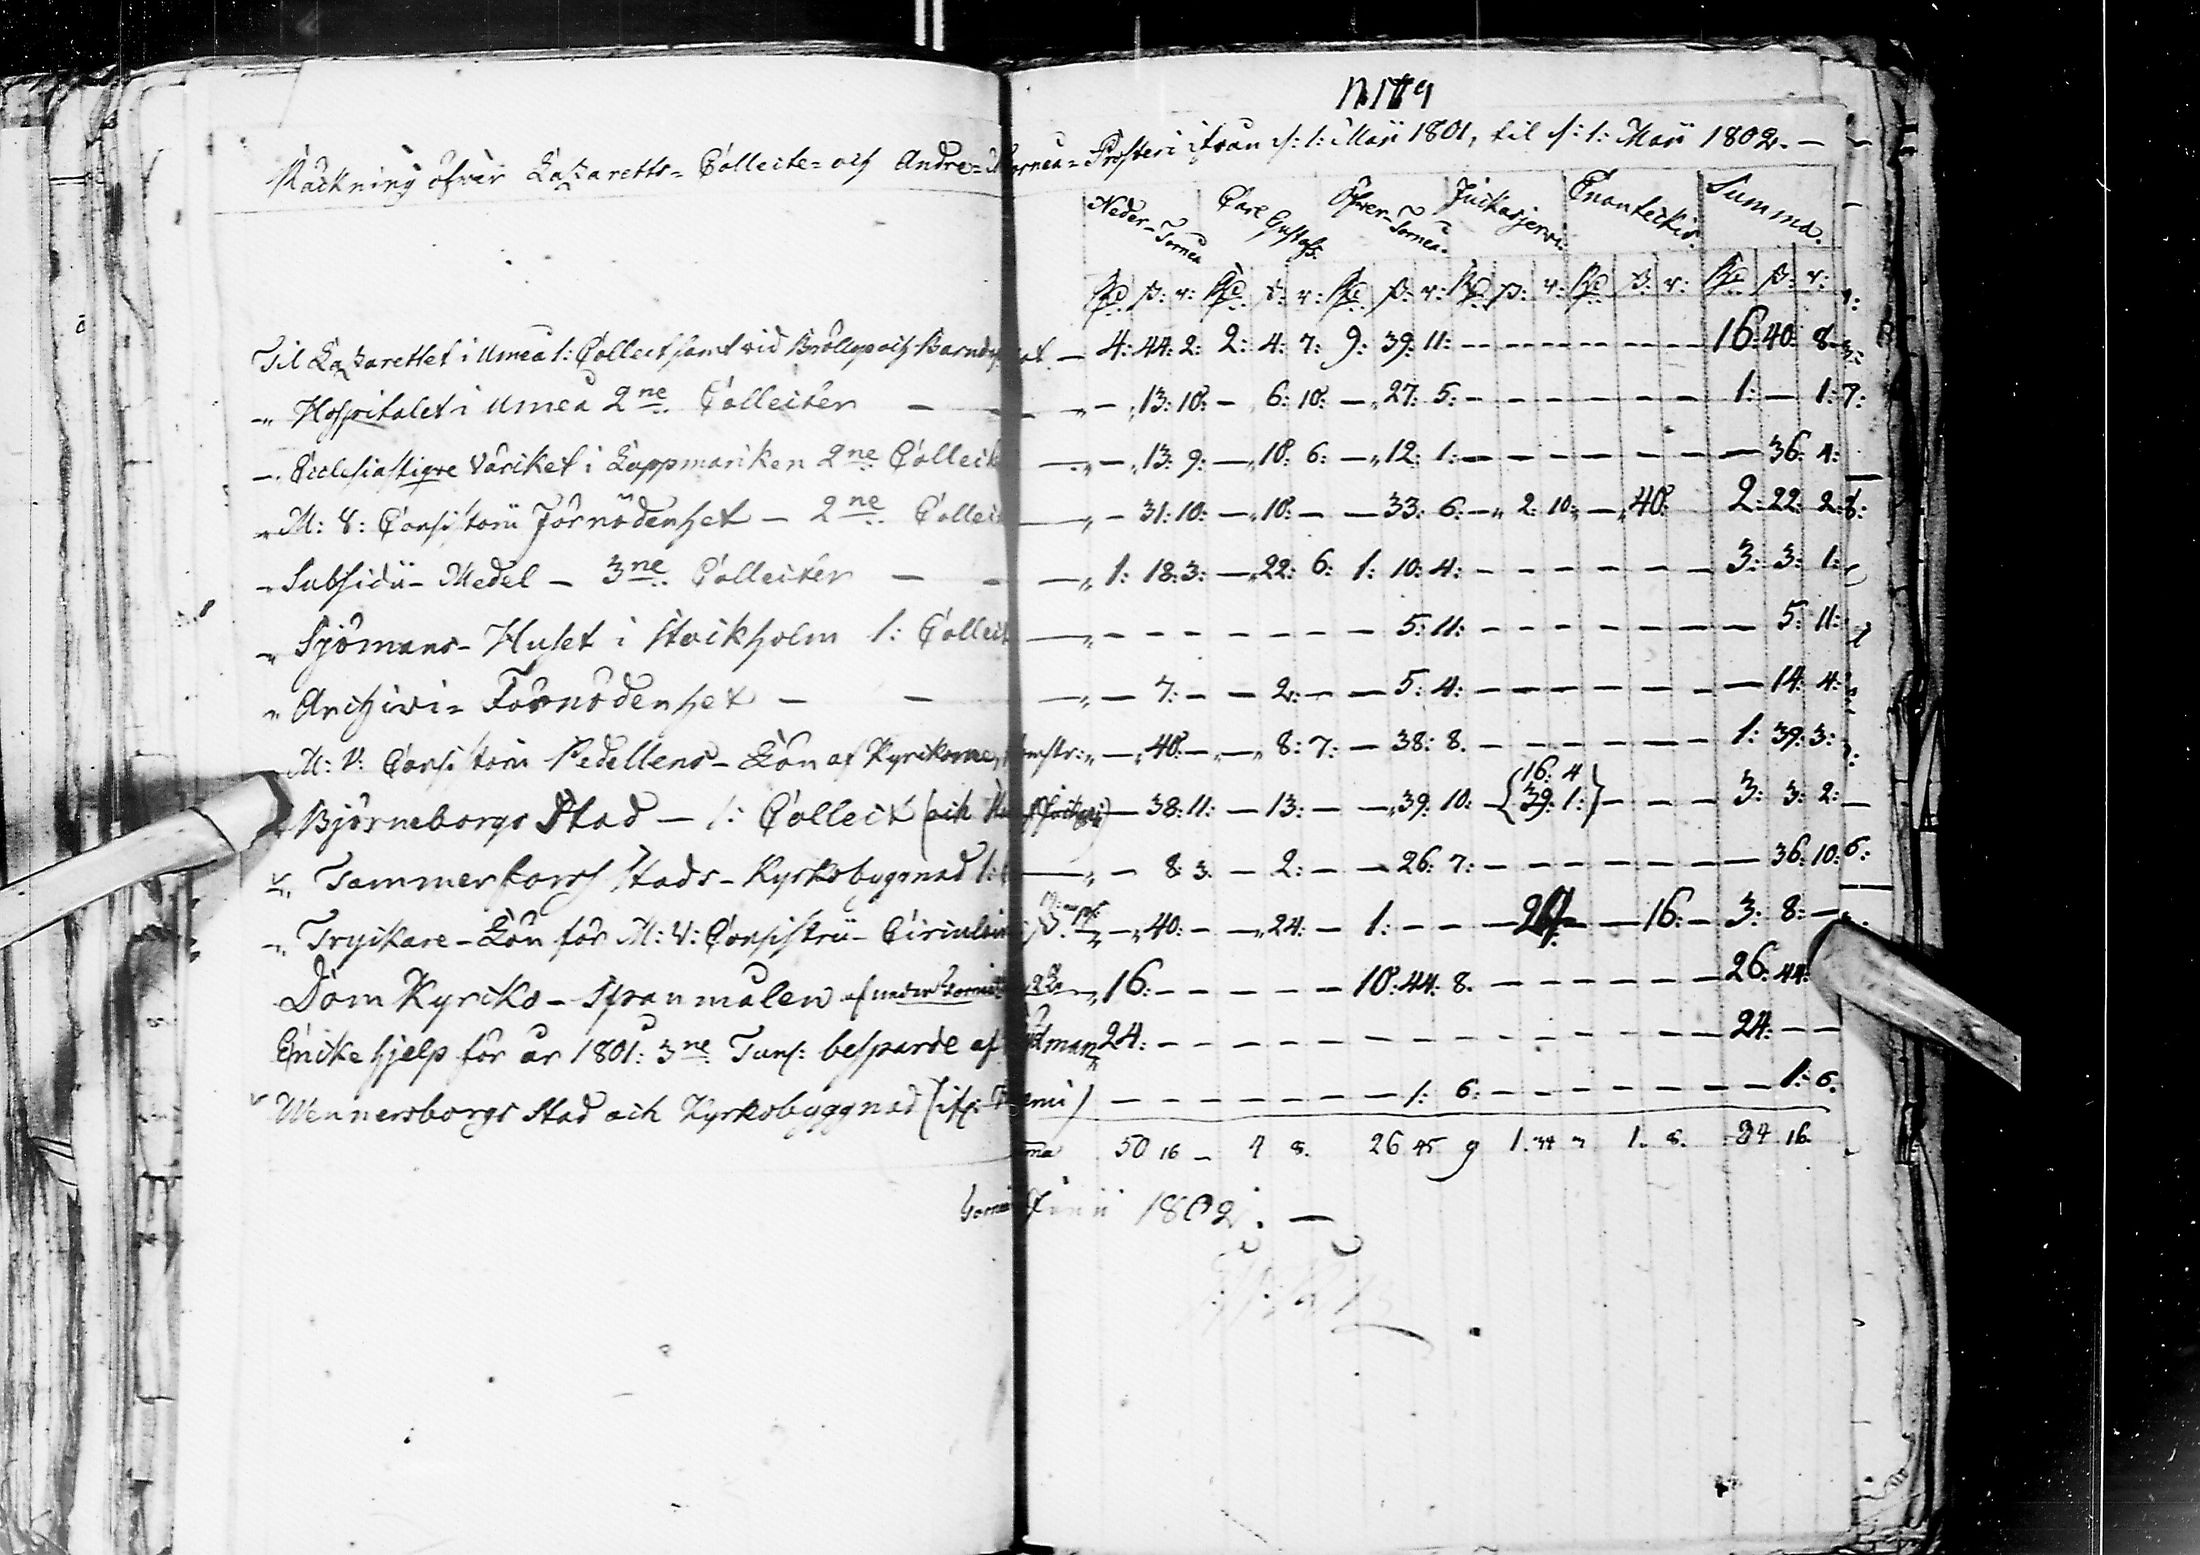 N 179
Räckning öfver Lazaretts- Collecte- och Andre- Torneå- Prosteri ifrån d: 1: Maii 1801, til d: 1: Maii 1802. —
Neder-Torneå Carl Gustafs Öfver-Torneå Juckasjerwi Enonteckis Summa.
Rd ß: r: Rd ß: r: Rd ß: r: Rd ß: r: Rd ß: r: Rd ß: r:
Til Lazarettet i Umeå 1: Collect samt vid Bröllop och Barndop — 4: 44: 2: 2: 4: 7: 9: 39: 11: — — — — — — 16: 40: 8
„ Hospitalet i Umeå 2ne Collecter — — „ — „ 13: 10: — „ 6: 10: — „ 27: 5: — — — — — — 1: — 1:
„ Ecclesiastique Värcket i Lappmarcken 2ne Collect — „ — „ 13: 9: — „ 10: 6: — „ 12: 1: — — — — — — — 36: 4:
„ M: V: Consistorii Förnödenhet — 2ne Collect — „ — 31: 10: — „ 10: — — 33: 6: — „ 2: 10: — „ 40: 2: 22: 2:
„ Subsidii- Medel — 3ne Collecter — — — „ 1: 18: 3: — „ 22: 6: 1: 10: 4: — — — — — — 3: 3: 1:
„ Sjömans- Huset i Stockholm 1: Collect — „ — — — — — — 5: 11: — — — — — — — 5: 11:
„ Archivi- Förnödenhet — — — „ — 7: — — 2: — — 5: 4: — — — — — — — 14: 4:
M: V: Consistorii Pedellens- Lön af Kyrckorne, „ — „ 40: — „ — „ 8: 7: — 38: 8. — — — — — — 1: 39: 3:
Björneborgs Stad — 1: Collect (och — 38: 11: — 13: — — „ 39: 10: — {16: 4 39: 1:} — — — 3: 3: 2:
„ Tammerforss Stads- Kyrkobyggnad 1: — „ — 8: 3. — 2: — — 26: 7: — — — — — — — 36: 10:
„ Tryckare- Lön för M: V: Consistorii- „ — „ 40: — — „ 24: — 1: — — — 24 — — 16: — 3: 8: —
Dom Kyrcko- Spanmålen af — „ 16: — — — — — 10: 44: 8. — — — — — — 26: 44:
Encke hjelp för år 1801: 3ne Tunn: besparde af 24: — — — — — — — — — — — — — — 24: — —
Wennersborgs Stad och Kyrkobyggnad — — — — — — — 1: 6: — — — — — — — 1: 6.
50 16 — 4 8. 26 45 9 1. 34 3 1. 8. 84 16.
Junii 1802. —